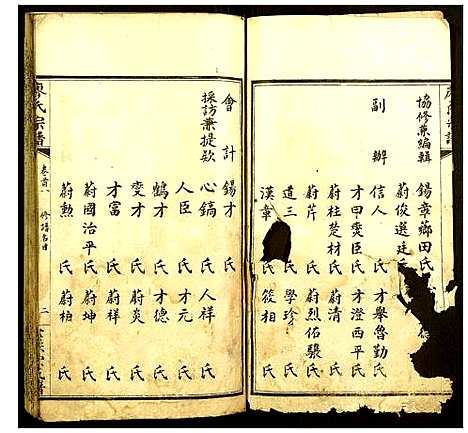 協修兼編輯 錫章薌田氏
蔚俊選廷氏
副辦 信人 氏 才舉魯勤氏
才甲奠臣氏 才澄西平氏
蔚杜楚材氏 蔚清 氏
蔚芹 氏 蔚烈佑驥氏
道三 氏 學珍 氏
漢章 氏 筱相 氏
會計 錫才 氏
採訪兼提欵 心鎬 氏 人祥 氏
人臣 氏 才元 氏
鶴才 氏 才德 氏
變才 氏 蔚炎 氏
才富 氏 蔚祥 氏
蔚國治平氏 蔚坤 氏
蔚勲 氏 蔚柏 氏
廖氏宗譜 卷首八 修譜名目 二